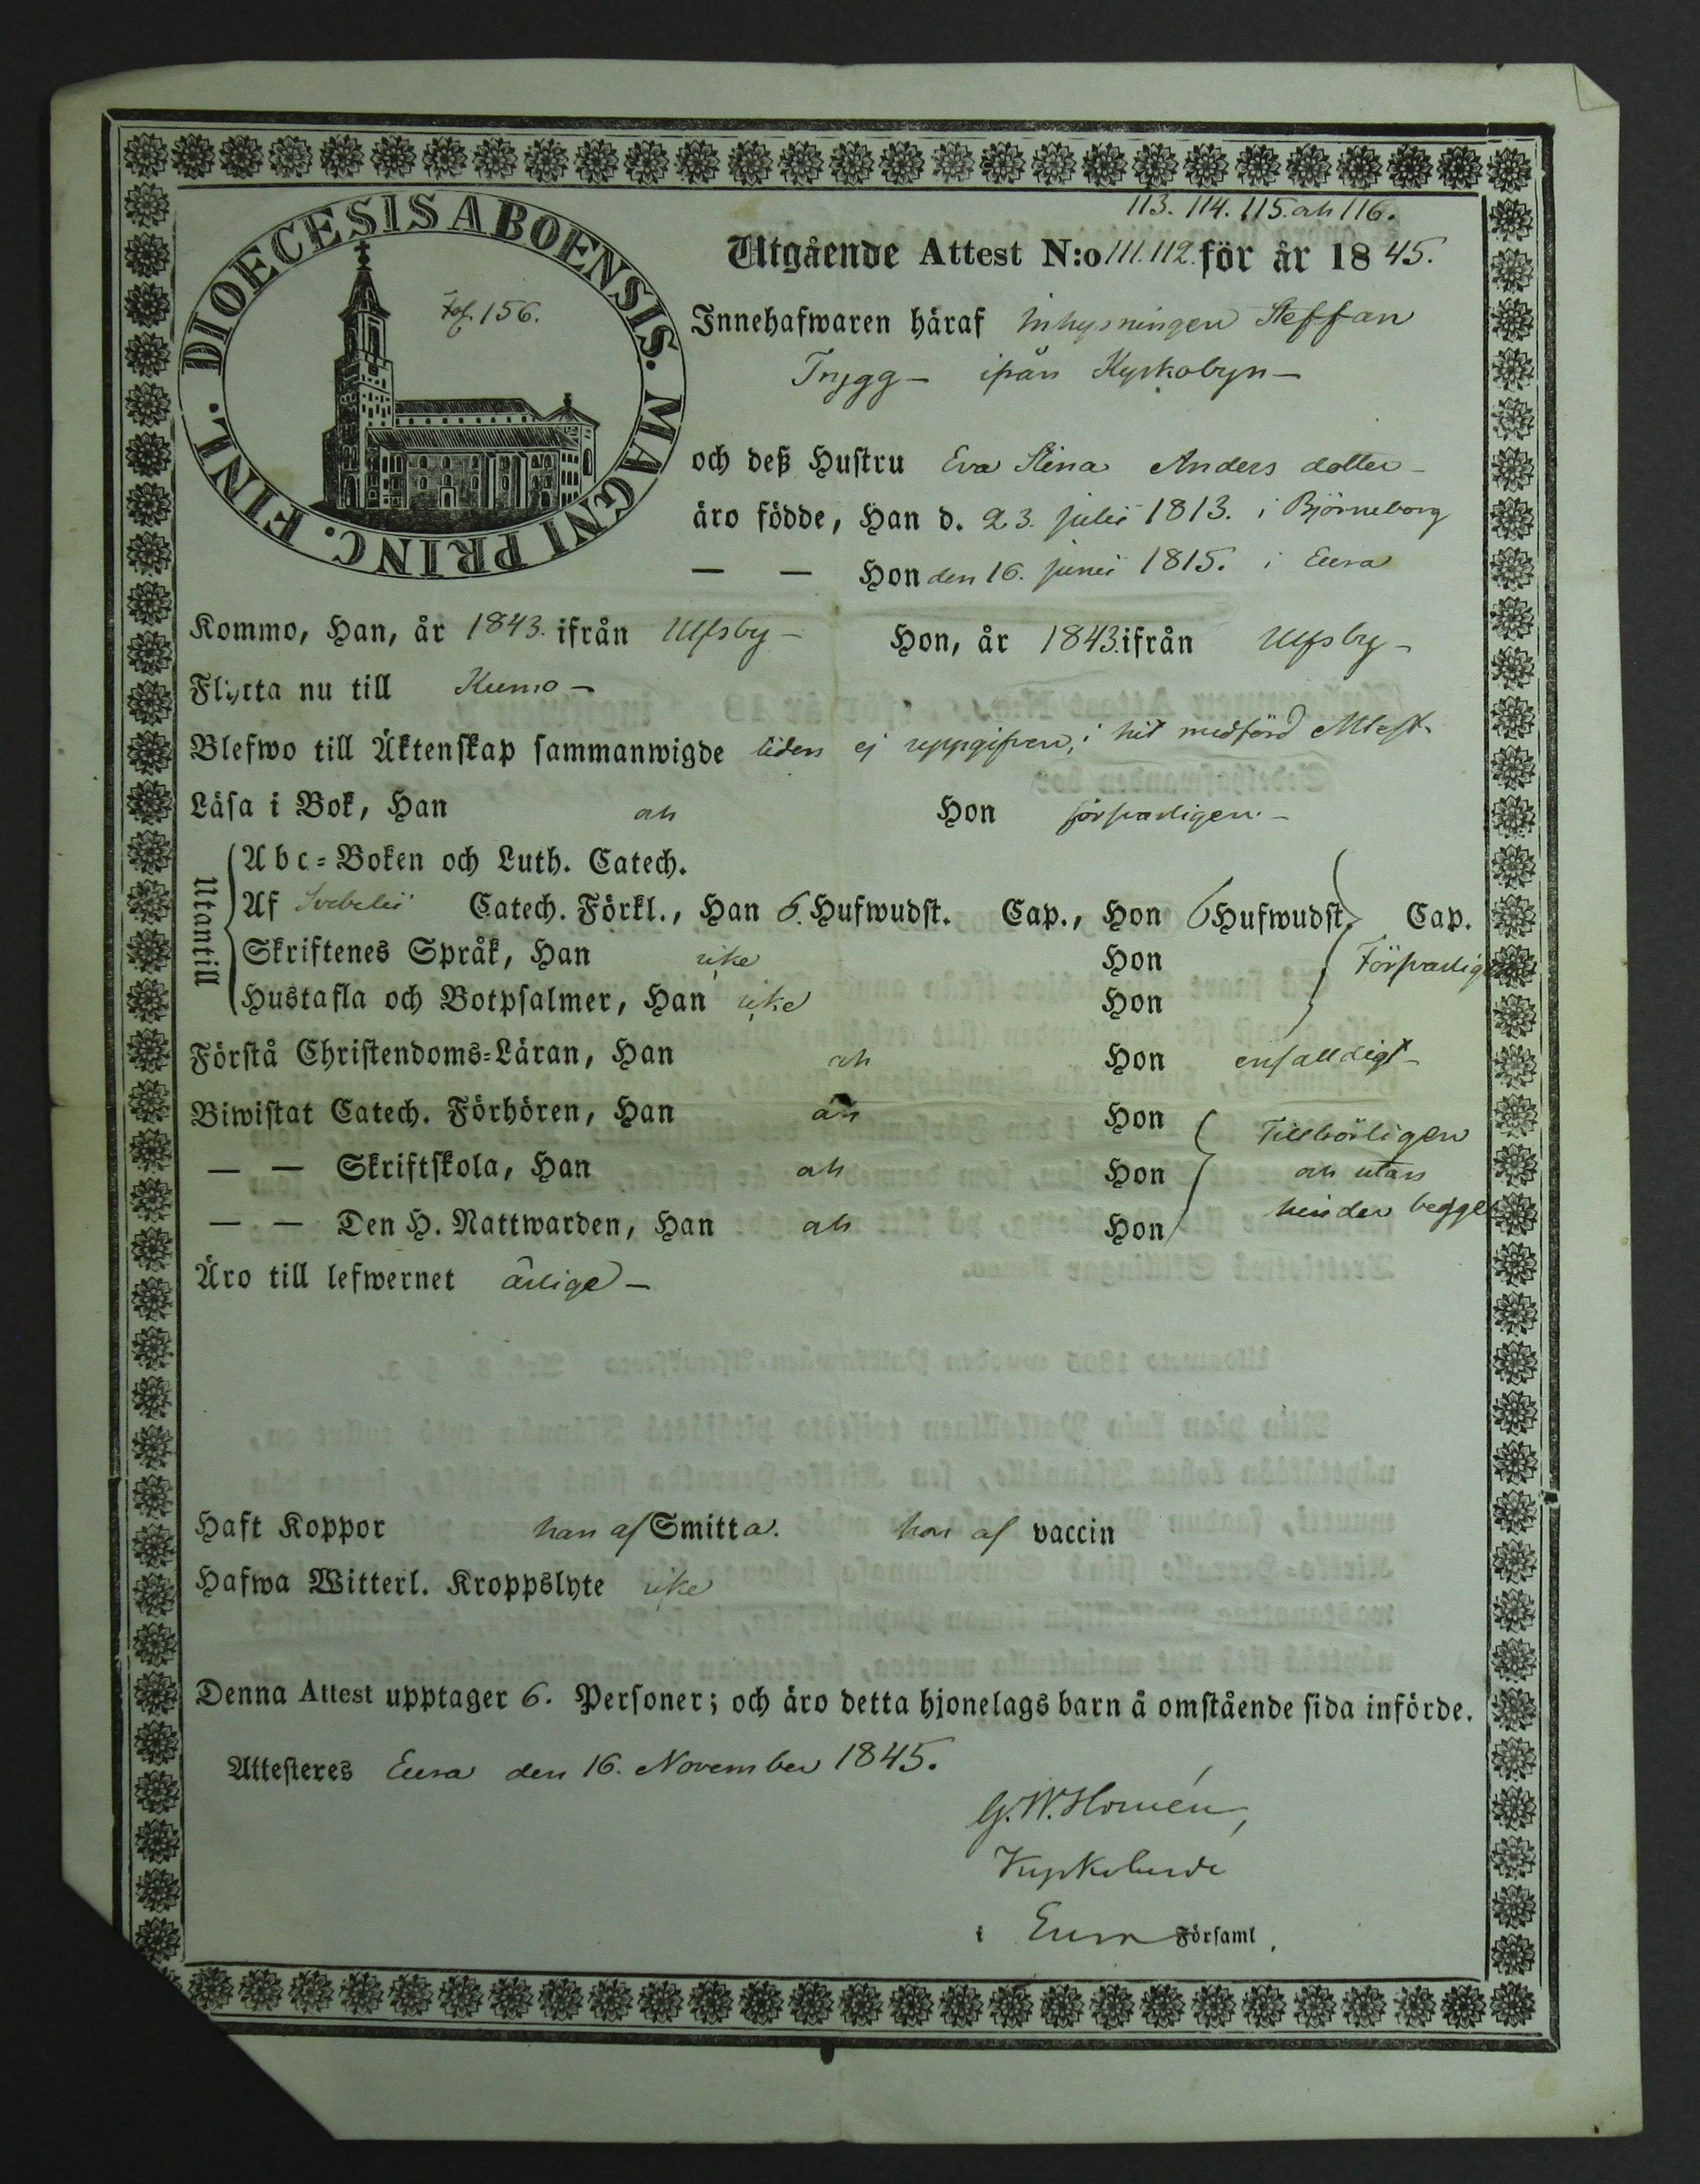 DIOECESIS ABOENSIS. MAGNI PRINC. FINL.
Fol. 156.
113. 114. 115. och 116.
Utgående Attest N:o 111. 112. för år 1845.
Innehafwaren häraf Inhysningen Steffan
Trygg - ifrån Kyrkobyn -
och deß Hustru Eva Stina Anders dotter -
äro födde, Han d. 23. julii 1813. i Björneborg
— — Hon den 16. junii 1815. i Eura
Kommo, Han, år 1843. ifrån Ulfsby - Hon, år 1843. ifrån Ulfsby -
Flytta nu till Kumo -
Blefwo till Äktenskap sammanwigde tiden ej uppgifven, i hit medförd Attest.
Läsa i Bok, Han och Hon försvarligen. -
Utantill
Abc-Boken och Luth. Catech.
Af Svebelii Catech. Förkl., Han 6. Hufwudst. Cap., Hon 6 Hufwudst. Cap.
Skriftenes Språk, Han icke Hon Försvarlig
Hustafla och Botpsalmer, Han icke Hon
Förstå Christendoms-Läran, Han och Hon enfalldigt -
Biwistat Catech. Förhören, Han och Hon Tillbörligen
— — Skriftskola, Han och Hon och utan
— — Den H. Nattwarden, Han och Hon hinder begge
Äro till lefwernet ärlige -
Haft Koppor han af Smitta. hon af vaccin
Hafwa Witterl. Kroppslyte icke
Denna Attest upptager 6. Personer; och äro detta hjonelags barn å omstående sida införde.
Attesteres Eura den 16. November 1845.
G. W. Homén,
Kyrkoherde
i Eura Församl.